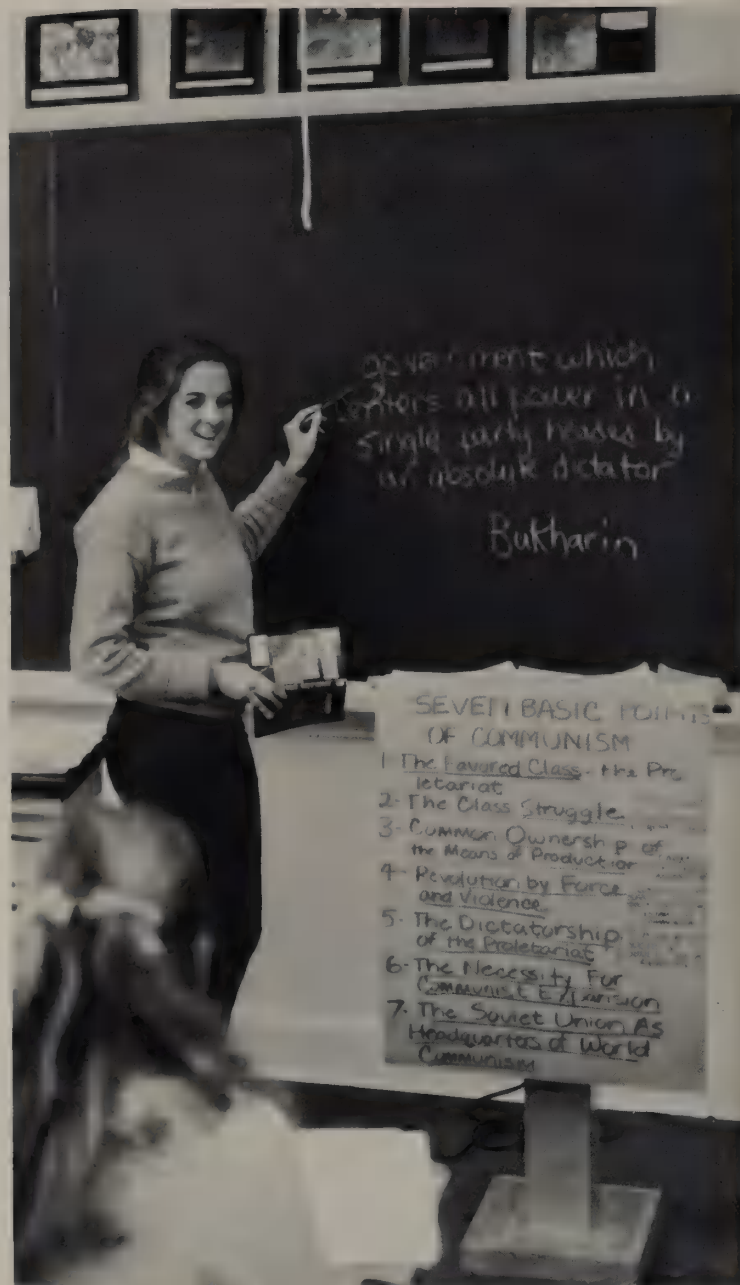 government which
centers all power in a
single party headed by
an absolute dictator
Bukharin
SEVEN BASIC POINTS
OF COMMUNISM
1 The Favured Class - the Pro
letariat
2- The Class Struggle
3- Common Ownership of
the Means of Production
4- Revolution by Force
and Violence
5- The Dictatorship
of the Proletariat
6- The Necessity For
Communist Expansion
7. The Soviet Union As
Headquarters of World
Communism